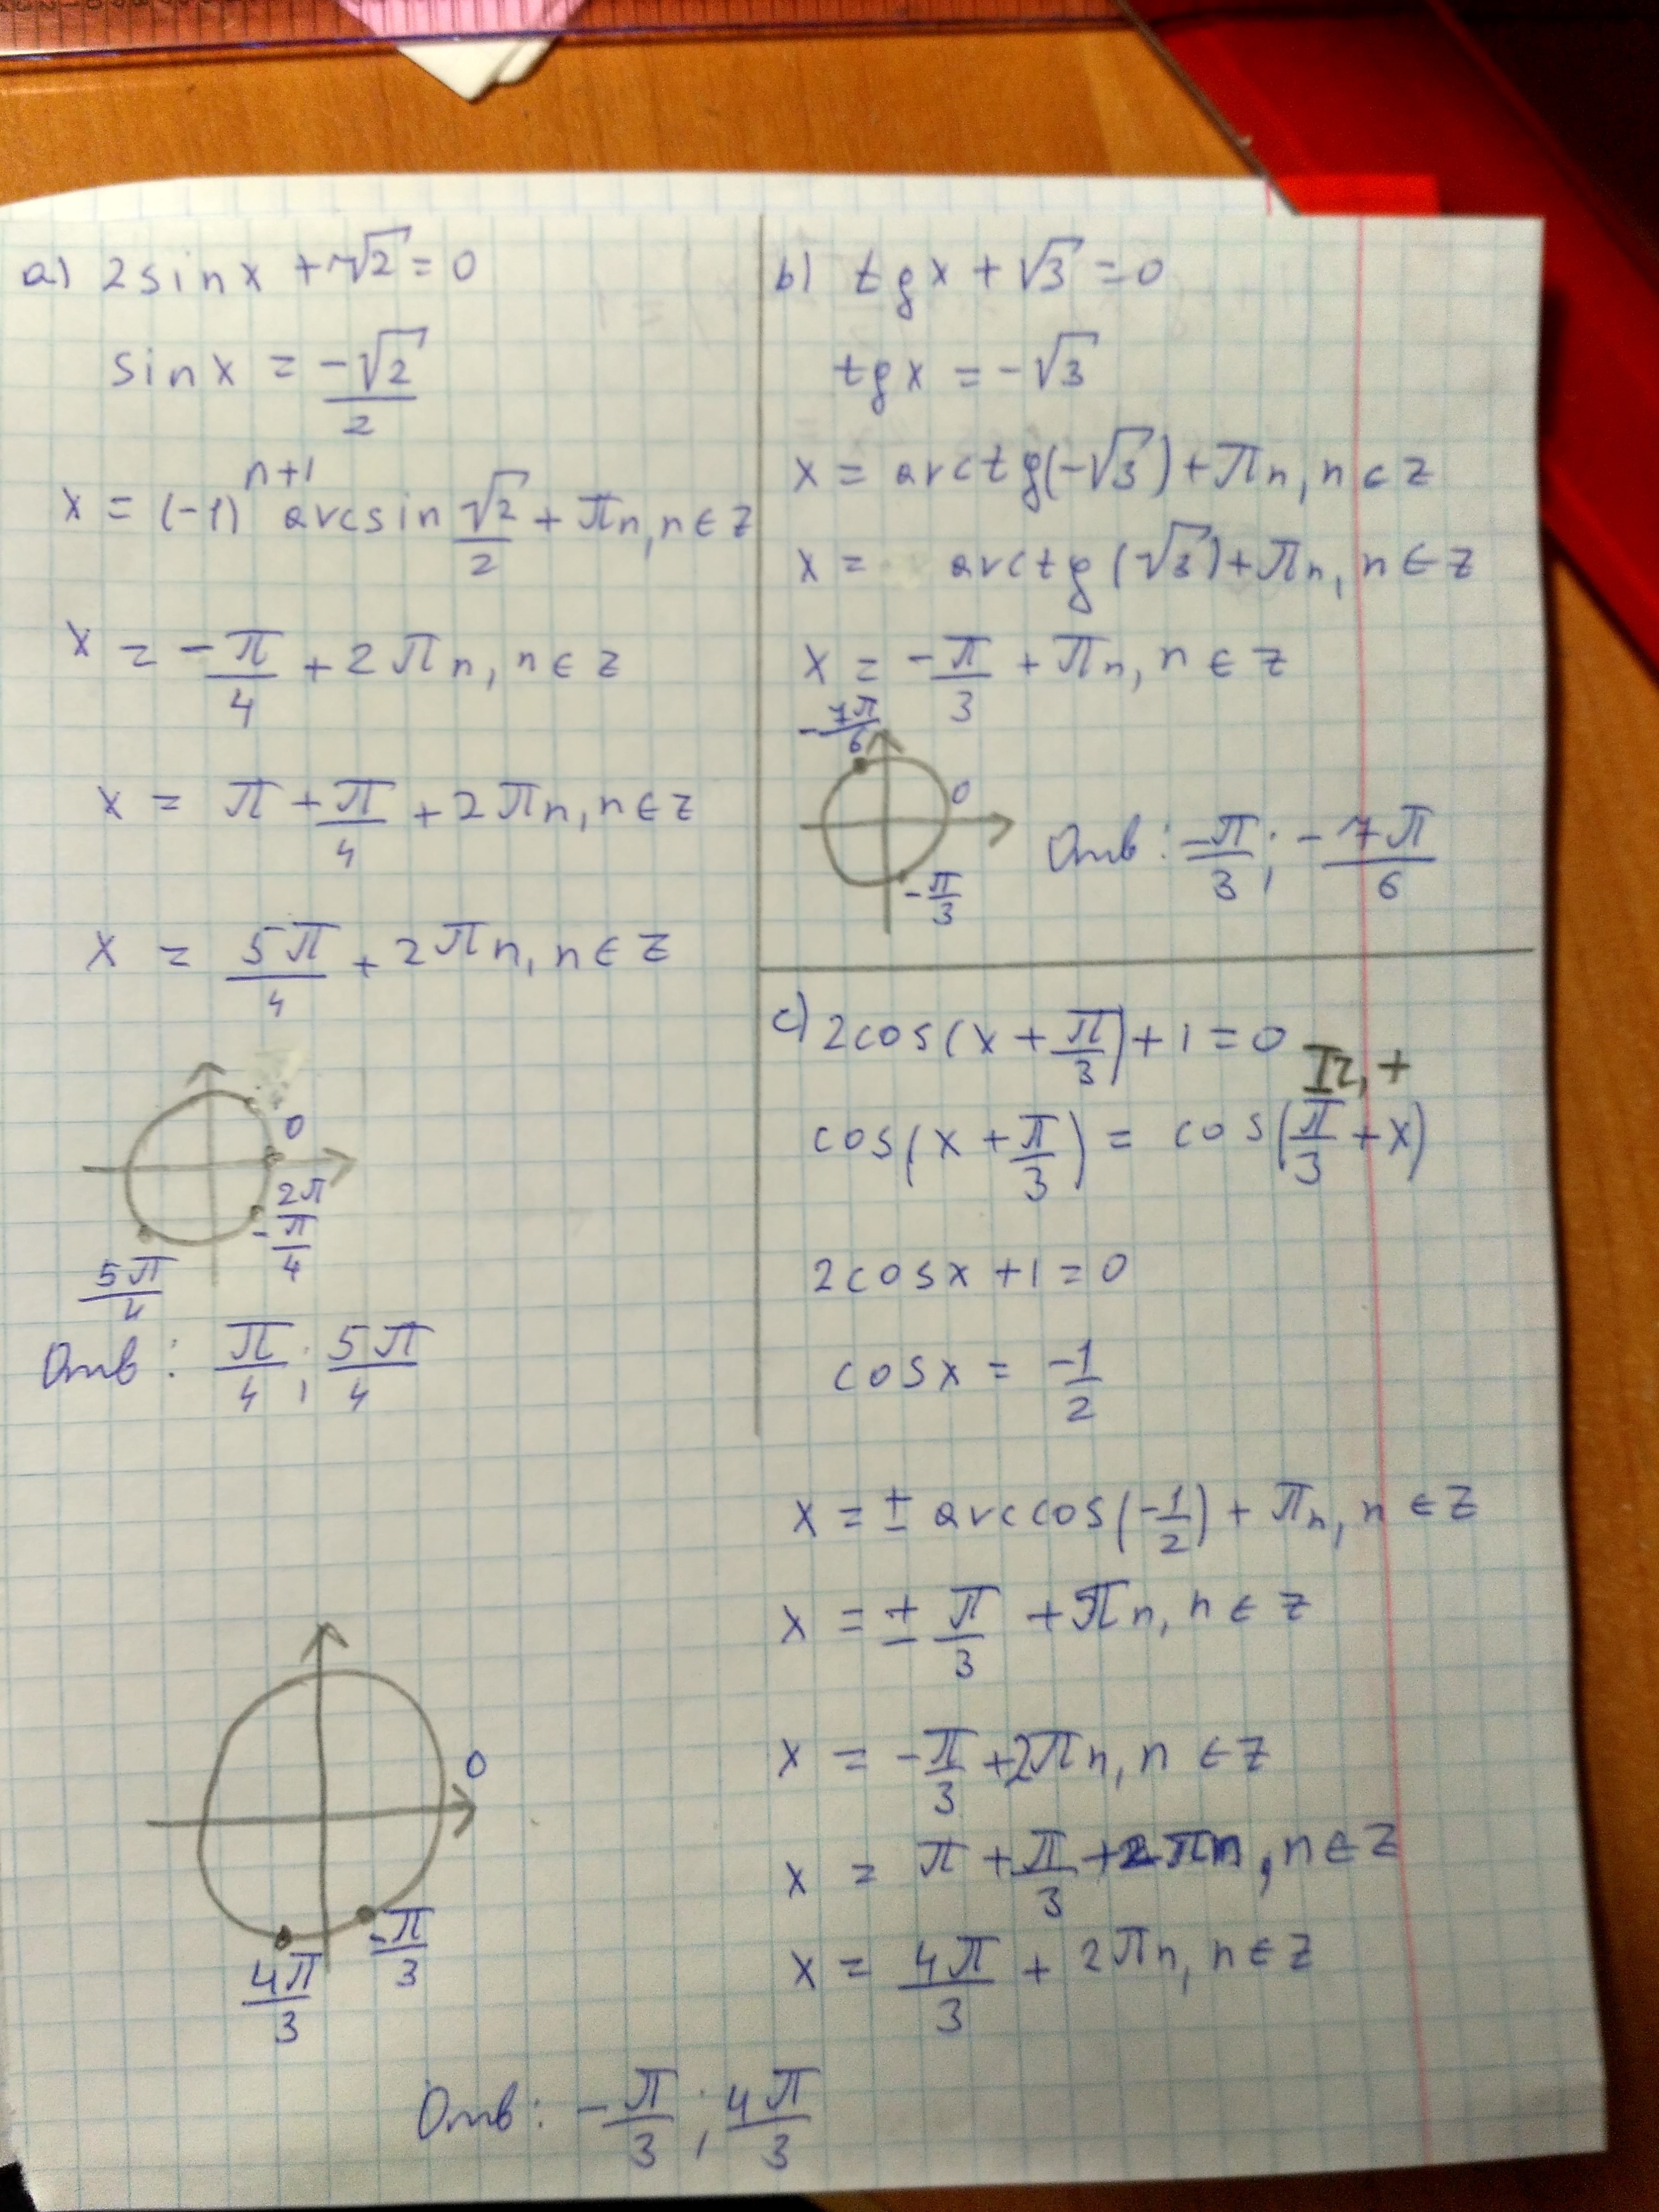 a) 2sinx + √2 = 0
sinx = -√2/2
x = (-1)^(n+1) arcsin √2/2 + πn, n ∈ z
x = -π/4 + 2πn, n ∈ z
x = π + π/4 + 2πn, n ∈ z
x = 5π/4 + 2πn, n ∈ z
0
2π
-π/4
5π/4
Отв: π/4; 5π/4
b) tgx + √3 = 0
tgx = -√3
x = arctg(-√3) + πn, n ∈ z
x = arctg(√3) + πn, n ∈ z
x = -π/3 + πn, n ∈ z
-7π/6
0
-π/3
Отв: -π/3; -7π/6
c) 2cos(x + π/3) + 1 = 0
cos(x + π/3) = cos(π/3 + x)
2cosx + 1 = 0
cosx = -1/2
x = ± arccos(-1/2) + πn, n ∈ z
x = ± π/3 + πn, n ∈ z
x = -π/3 + 2πn, n ∈ z
x = π + π/3 + 2πn, n ∈ z
x = 4π/3 + 2πn, n ∈ z
0
-π/3
4π/3
Отв: -π/3; 4π/3